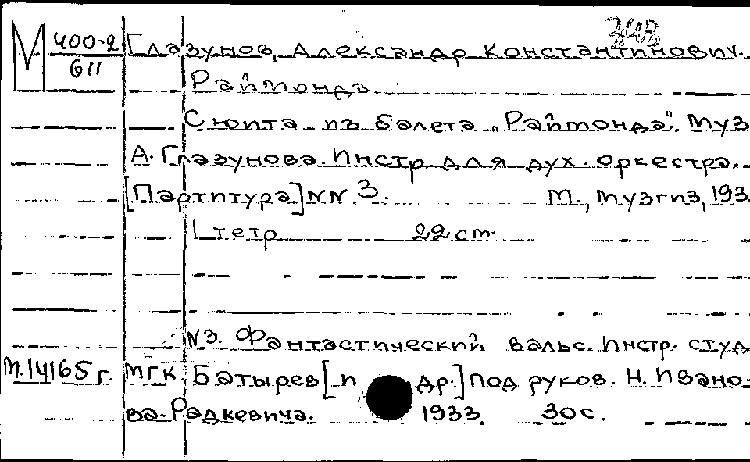 М 400-2
611
Глазунов, Александр Константинович.
Раймонда
Сюита из балета „Раймонда". Муз
А. Глазунова. Инстр для дух. оркестра.
[Партитура] NN 3. М., Музгиз, 193
1 тетр 22 см
N3. Фантастический вальс. Инстр. студ
П.14165 г. МГК Батырев [и др.] под руков. Н. Ивано
ва-Радкевича. 1933. 30 с.